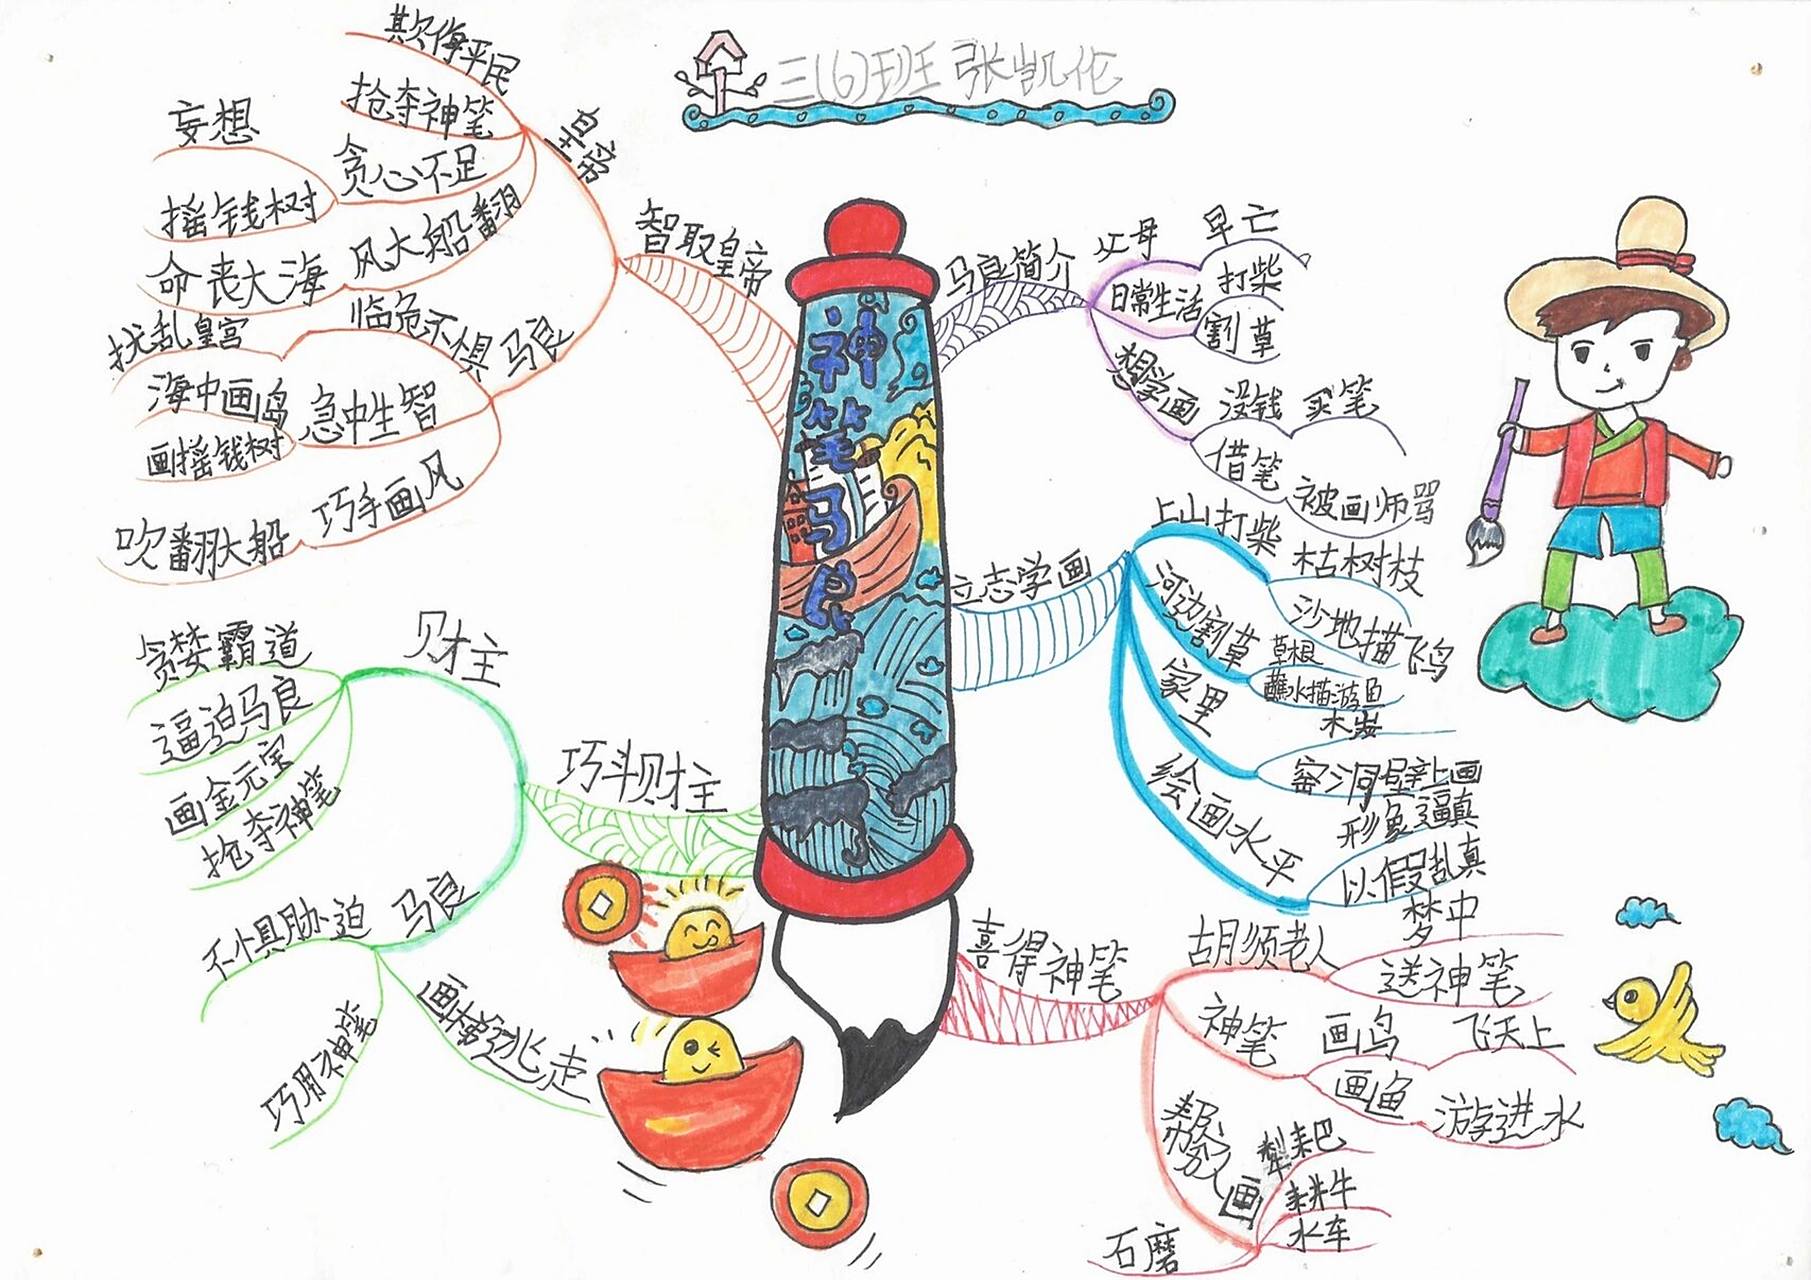 三(6)班 张凯伦
神笔马良
马良简介
父母
早亡
日常生活
打柴
割草
想学画
没钱 买笔
借笔
被画师骂
立志学画
上山打柴
枯树枝
沙地描飞鸟
河边割草
草根
蘸水描游鱼
家里
木炭
窑洞壁上画
绘画水平
形象逼真
以假乱真
喜得神笔
胡须老人
梦中
送神笔
神笔
画鸟
飞天上
画鱼
游进水
帮穷人画
犁耙
耕牛
水车
石磨
巧斗财主
财主
贪婪霸道
逼迫马良
画金元宝
抢夺神笔
马良
不惧胁迫
巧用神笔
画梯逃走
智取皇帝
皇帝
欺侮平民
抢夺神笔
贪心不足
妄想
摇钱树
风大船翻
命丧大海
马良
临危不惧
扰乱皇宫
急中生智
海中画岛
画摇钱树
巧手画风
吹翻大船